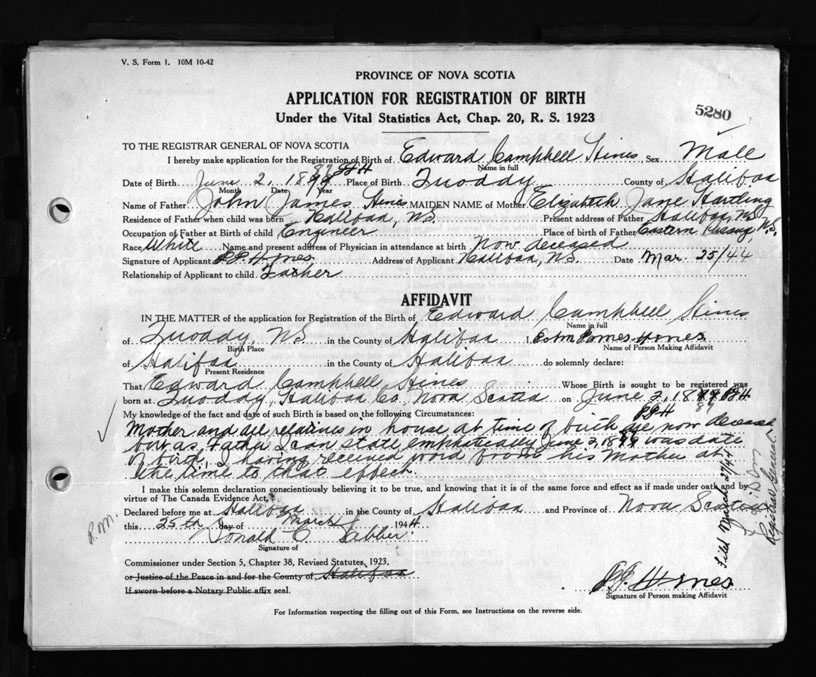 V. S. Form 1. 10M 10-42
PROVINCE OF NOVA SCOTIA
APPLICATION FOR REGISTRATION OF BIRTH
5280
Under the Vital Statistics Act, Chap. 20, R. S. 1923
TO THE REGISTRAR GENERAL OF NOVA SCOTIA
I hereby make application for the Registration of Birth of Edward Campbell Hines Sex Male
Name in full
Date of Birth June 2, 18 Place of Birth Quoddy County of Halifax
Month Date Year
Name of Father John James Hines MAIDEN NAME of Mother Elizabeth Jane Hartling
Residence of Father when child was born Halifax, NS. Present address of Father Halifax, NS
Occupation of Father at Birth of child Engineer Place of birth of Father Eastern Passage, N.S.
Race White Name and present address of Physician in attendance at birth Now deceased
Signature of Applicant Hines Address of Applicant Halifax, NS. Date Mar. 25/44
Relationship of Applicant to child Father
AFFIDAVIT
IN THE MATTER of the application for Registration of the Birth of Edward Campbell Hines
Name in full
of Quoddy, NS in the County of Halifax I, John James Hines
Birth Place Name of Person Making Affidavit
of Halifax in the County of Halifax do solemnly declare:
Present Residence
That Edward Campbell Hines Whose Birth is sought to be registered was
born at Quoddy, Halifax Co, Nova Scotia on June 2, 18
My knowledge of the fact and date of such Birth is based on the following Circumstances:
Mother and all relatives in house at time of birth are now deceased
but as Father I can state emphatically June 2, 18 was date
of birth, I having received word from his Mother at
the time to that effect.
I make this solemn declaration conscientiously believing it to be true, and knowing that it is of the same force and effect as if made under oath and by
virtue of The Canada Evidence Act.
Declared before me at Halifax in the County of Halifax and Province of Nova Scotia
this 25th day of March 1944
Donald C.
Signature of
Commissioner under Section 5, Chapter 38, Revised Statutes, 1923,
or Justice of the Peace in and for the County of Halifax
If sworn before a Notary Public affix seal.
Hines
Signature of Person Making Affidavit
For Information respecting the filling out of this Form, see Instructions on the reverse side.
Filed March 27/44
Registrar General